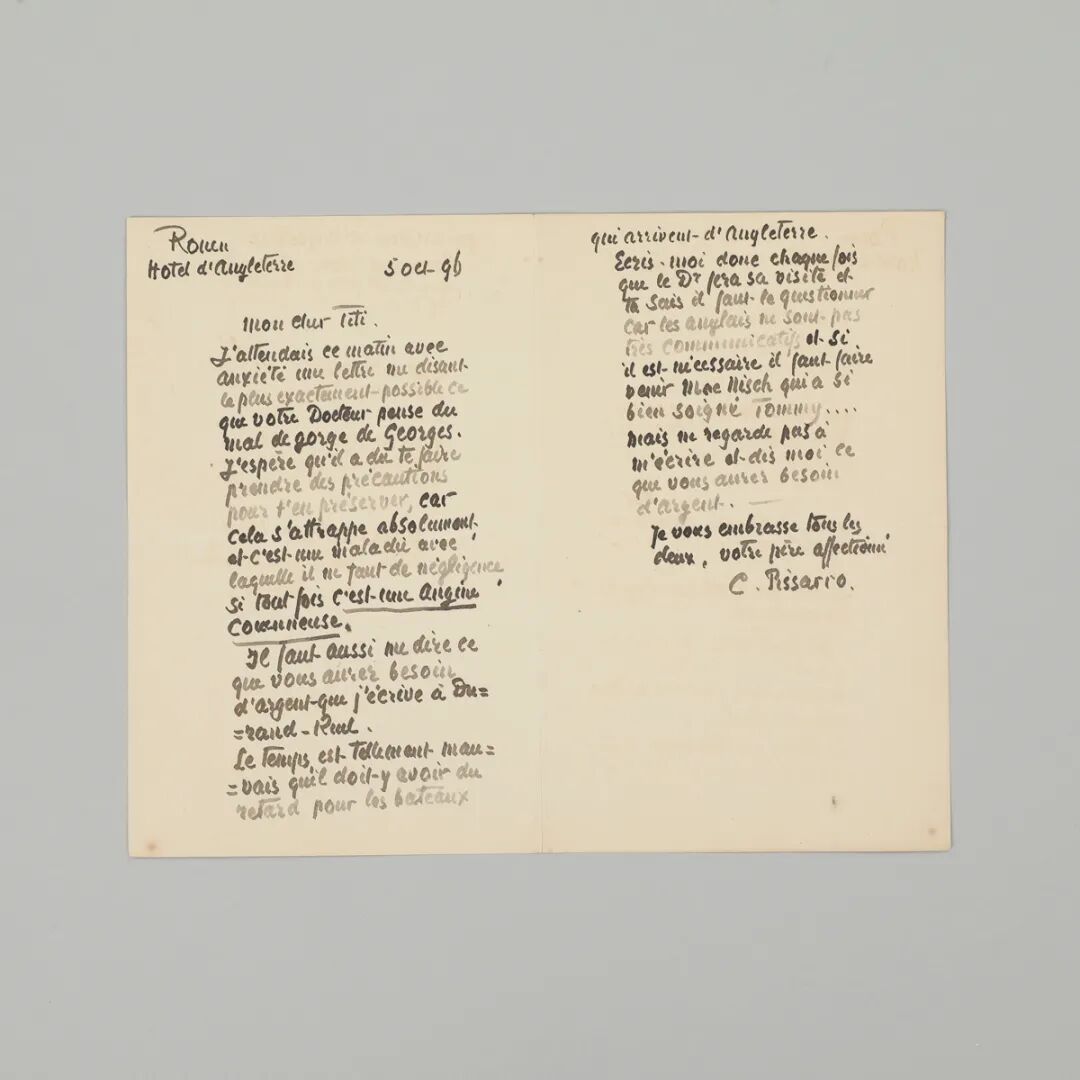 Rouen
Hotel d'Angleterre 5 oct 96
mon cher Titi.
J'attendais ce matin avec
anxiété une lettre me disant
le plus exactement possible ce
que votre Docteur pense du
mal de gorge de Georges.
J'espère qu'il a du te faire
prendre des précautions
pour t'en préserver, car
cela s'attrappe absolument
et c'est une maladie avec
laquelle il ne faut de négligence
si tout fois c'est une Angine
Couenneuse.
Il faut aussi me dire ce
que vous aurez besoin
d'argent que j'écrive à Du=
=rand-Ruel.
Le temps est tellement mau=
=vais qu'il doit y avoir du
retard pour les bateaux
qui arrivent d'Angleterre.
Ecris-moi donc chaque fois
que le Dr fera sa visite et
tu sais il faut le questionner
car les anglais ne sont pas
très communicatifs et si
il est nécessaire il faut faire
venir Mme Nisch qui a si
bien soigné Tommy....
mais ne regarde pas à
m'écrire et dis moi ce
que vous aurez besoin
d'argent. —
Je vous embrasse tous les
deux, votre père affectionné
C. Pissarro.